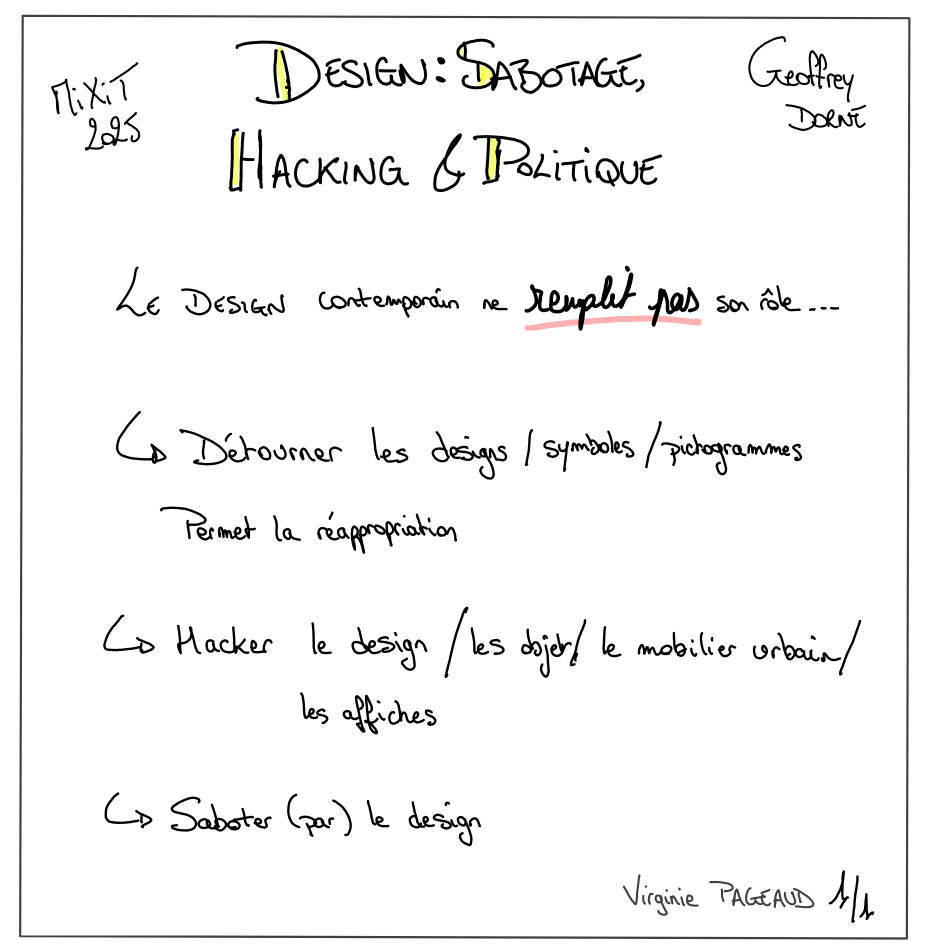 MiXiT
2025
DESIGN: SABOTAGE,
HACKING & POLITIQUE
Geoffrey
DORNE
LE DESIGN contemporain ne remplit pas son rôle...
↳ Détourner les designs / symboles / pictogrammes
Permet la réappropriation
↳ Hacker le design / les objets / le mobilier urbain /
les affiches
↳ Saboter (par) le design
Virginie PAGEAUD 1/1